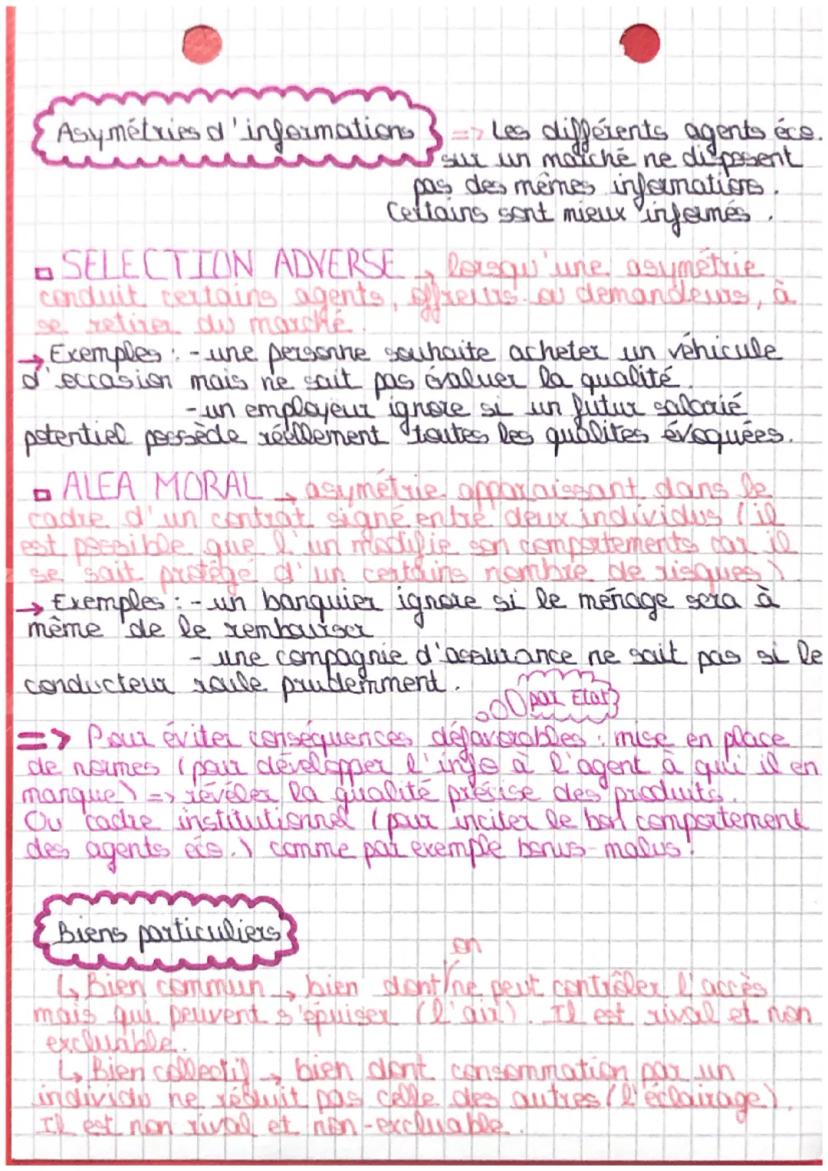 Asymétries d'informations => Les différents agents éco.
sur un marché ne disposent
pas des mêmes informations.
Certains sont mieux informés.
SELECTION ADVERSE → lorsqu'une asymétrie
conduit certains agents, offreurs ou demandeurs, à
se retirer du marché.
→ Exemples : - une personne souhaite acheter un véhicule
d'occasion mais ne sait pas évaluer la qualité.
- un employeur ignore si un futur salarié
potentiel possède réellement toutes les qualites évoquées.
ALEA MORAL → asymétrie apparaissant dans le
cadre d'un contrat signé entre deux individus (il
est possible que l'un modifie son comportements car il
se sait protégé d'un certains nombre de risques)
→ Exemples : - un banquier ignore si le ménage sera à
même de le rembourser
- une compagnie d'assurance ne sait pas si le
conducteur roule prudemment.
par Etat
=> Pour éviter conséquences défavorables : mise en place
de normes (pour développer l'info à l'agent à qui il en
manque) => révéler la qualité précise des produits.
Ou cadre institutionnel (pour inciter le bon comportement
des agents éco.) comme par exemple bonus-malus.
Biens particuliers
on
↳ Bien commun → bien dont ne peut contrôler l'accès
mais qui peuvent s'épuiser (l'air). Il est rival et non
excluable.
↳ Bien collectif → bien dont consommation par un
individu ne réduit pas celle des autres (l'éclairage).
Il est non rival et non-excluable.